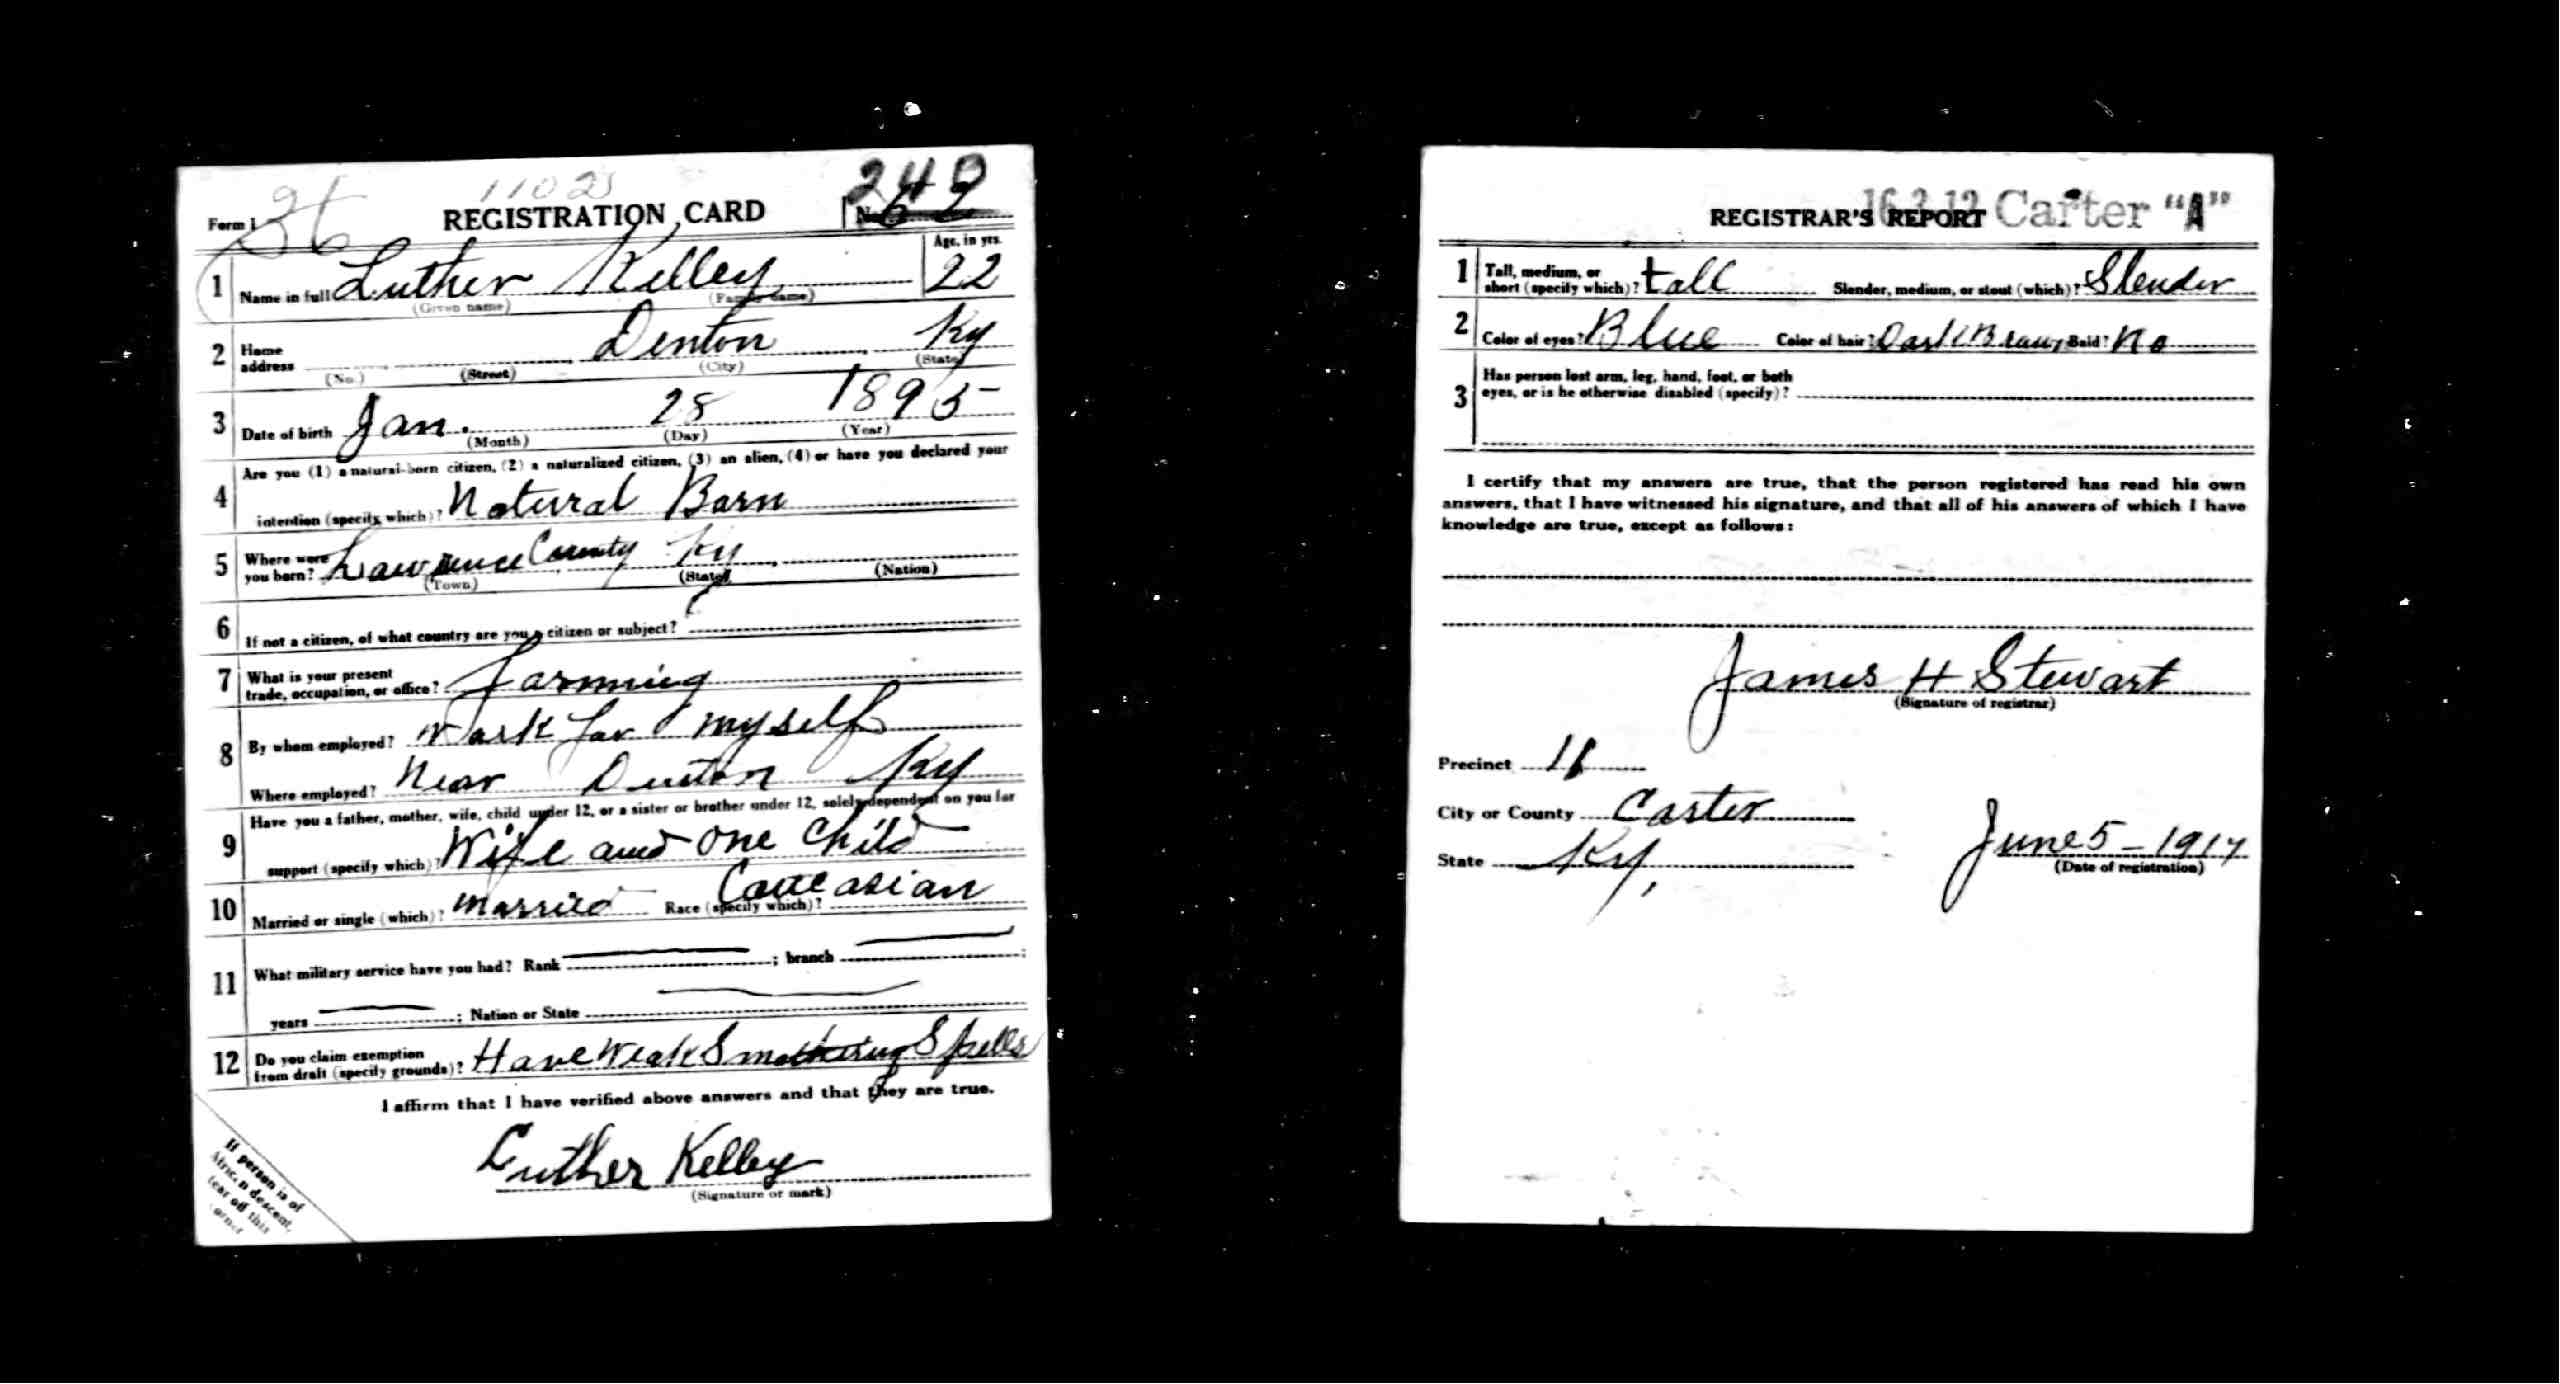 11025
240
Form 1 36 REGISTRATION CARD No. 62
1 Name in full Luther Kelley Age, in yrs. 22
(Given name) (Family name)
2 Home address Denton Ky
(No.) (Street) (City) (State)
3 Date of birth Jan. 28 1895
(Month) (Day) (Year)
4 Are you (1) a natural-born citizen, (2) a naturalized citizen, (3) an alien, (4) or have you declared your
intention (specify which)? Natural Born
5 Where were you born? Lawrence County Ky
(Town) (State) (Nation)
6 If not a citizen, of what country are you a citizen or subject?
7 What is your present trade, occupation, or office? farming
8 By whom employed? Work for myself
Where employed? Near Denton Ky
9 Have you a father, mother, wife, child under 12, or a sister or brother under 12, solely dependent on you for
support (specify which)? Wife and one Child
10 Married or single (which)? Married Race (specify which)? Caucasian
11 What military service have you had? Rank ; branch ;
years ; Nation or State
12 Do you claim exemption from draft (specify grounds)? Have Weak Smothering Spells
I affirm that I have verified above answers and that they are true.
Luther Kelley
(Signature or mark)
If person is of
African descent,
tear off this
corner
REGISTRAR'S REPORT 16 3 12 Carter "A"
1 Tall, medium, or short (specify which)? tall Slender, medium, or stout (which)? Slender
2 Color of eyes? Blue Color of hair? Dark Brown Bald? No
3 Has person lost arm, leg, hand, foot, or both
eyes, or is he otherwise disabled (specify)?
I certify that my answers are true, that the person registered has read his own
answers, that I have witnessed his signature, and that all of his answers of which I have
knowledge are true, except as follows:
James H Stewart
(Signature of registrar)
Precinct 11
City or County Carter
State Ky, June 5 - 1917
(Date of registration)